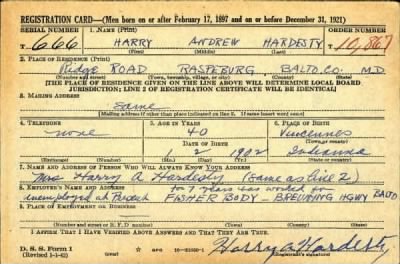 REGISTRATION CARD—(Men born on or after February 17, 1897 and on or before December 31, 1921)
SERIAL NUMBER 1. NAME (Print) ORDER NUMBER
T 666 HARRY ANDREW HARDESTY T 10,867
(First) (Middle) (Last)
2. PLACE OF RESIDENCE (Print)
Ridge ROAD RASPEBURG BALTO. CO. MD
(Number and street) (Town, township, village, or city) (County) (State)
[THE PLACE OF RESIDENCE GIVEN ON THE LINE ABOVE WILL DETERMINE LOCAL BOARD
JURISDICTION; LINE 2 OF REGISTRATION CERTIFICATE WILL BE IDENTICAL]
3. MAILING ADDRESS
Same
[Mailing address if other than place indicated on line 2. If same insert word same]
4. TELEPHONE 5. AGE IN YEARS 6. PLACE OF BIRTH
none 40 Vincennes
DATE OF BIRTH (Town or county)
1 2 1902 Indianna
(Mo.) (Day) (Yr.) (State or country)
7. NAME AND ADDRESS OF PERSON WHO WILL ALWAYS KNOW YOUR ADDRESS
Mrs Harry A Hardesty (same as line 2)
8. EMPLOYER'S NAME AND ADDRESS for 7 years was worked for
unemployed at Present FISHER BODY - BROENING HGWY BALTO
9. PLACE OF EMPLOYMENT OR BUSINESS
(Number and street or R. F. D. number) (Town) (County) (State)
I AFFIRM THAT I HAVE VERIFIED ABOVE ANSWERS AND THAT THEY ARE TRUE.
D. S. S. Form 1
(Revised 1-1-42) Harry A Hardesty
(Registrant's signature)